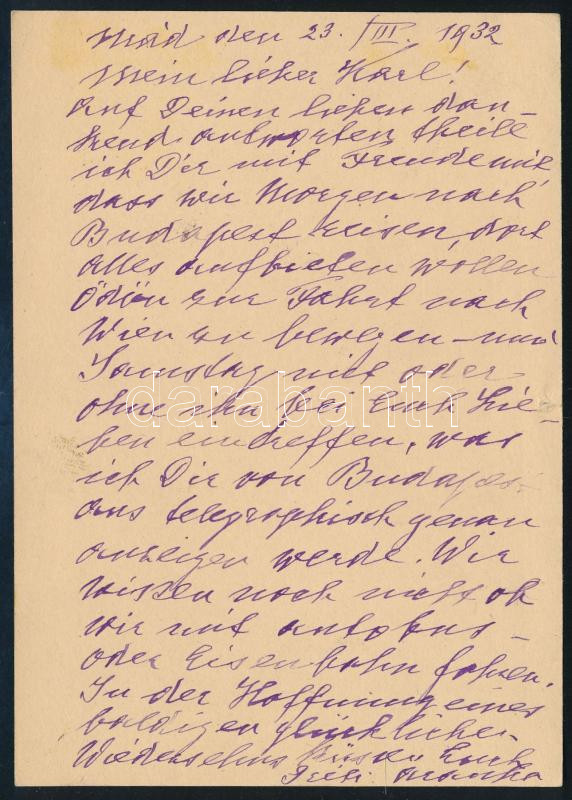 Mád den 23. /III. 1932
Mein lieber Karl!
Auf Deinen lieben dan-
kend antworten theile
ich Dir mit Freude mit,
dass wir Morgen nach
Budapest reisen, dort
alles aufbieten wollen
Ödön zur Fahrt nach
Wien zu bewegen – und
Samstag mit oder
ohne ihn bei Euch Lie-
ben eintreffen, was
ich Dir von Budapest
aus telegraphisch genau
anzeigen werde. Wir
wissen noch nicht ob
wir mit autobus –
oder Eisenbahn fahren.
In der Hoffnung eines
baldigen glücklichen
Wiedersehns Euch
darabanth